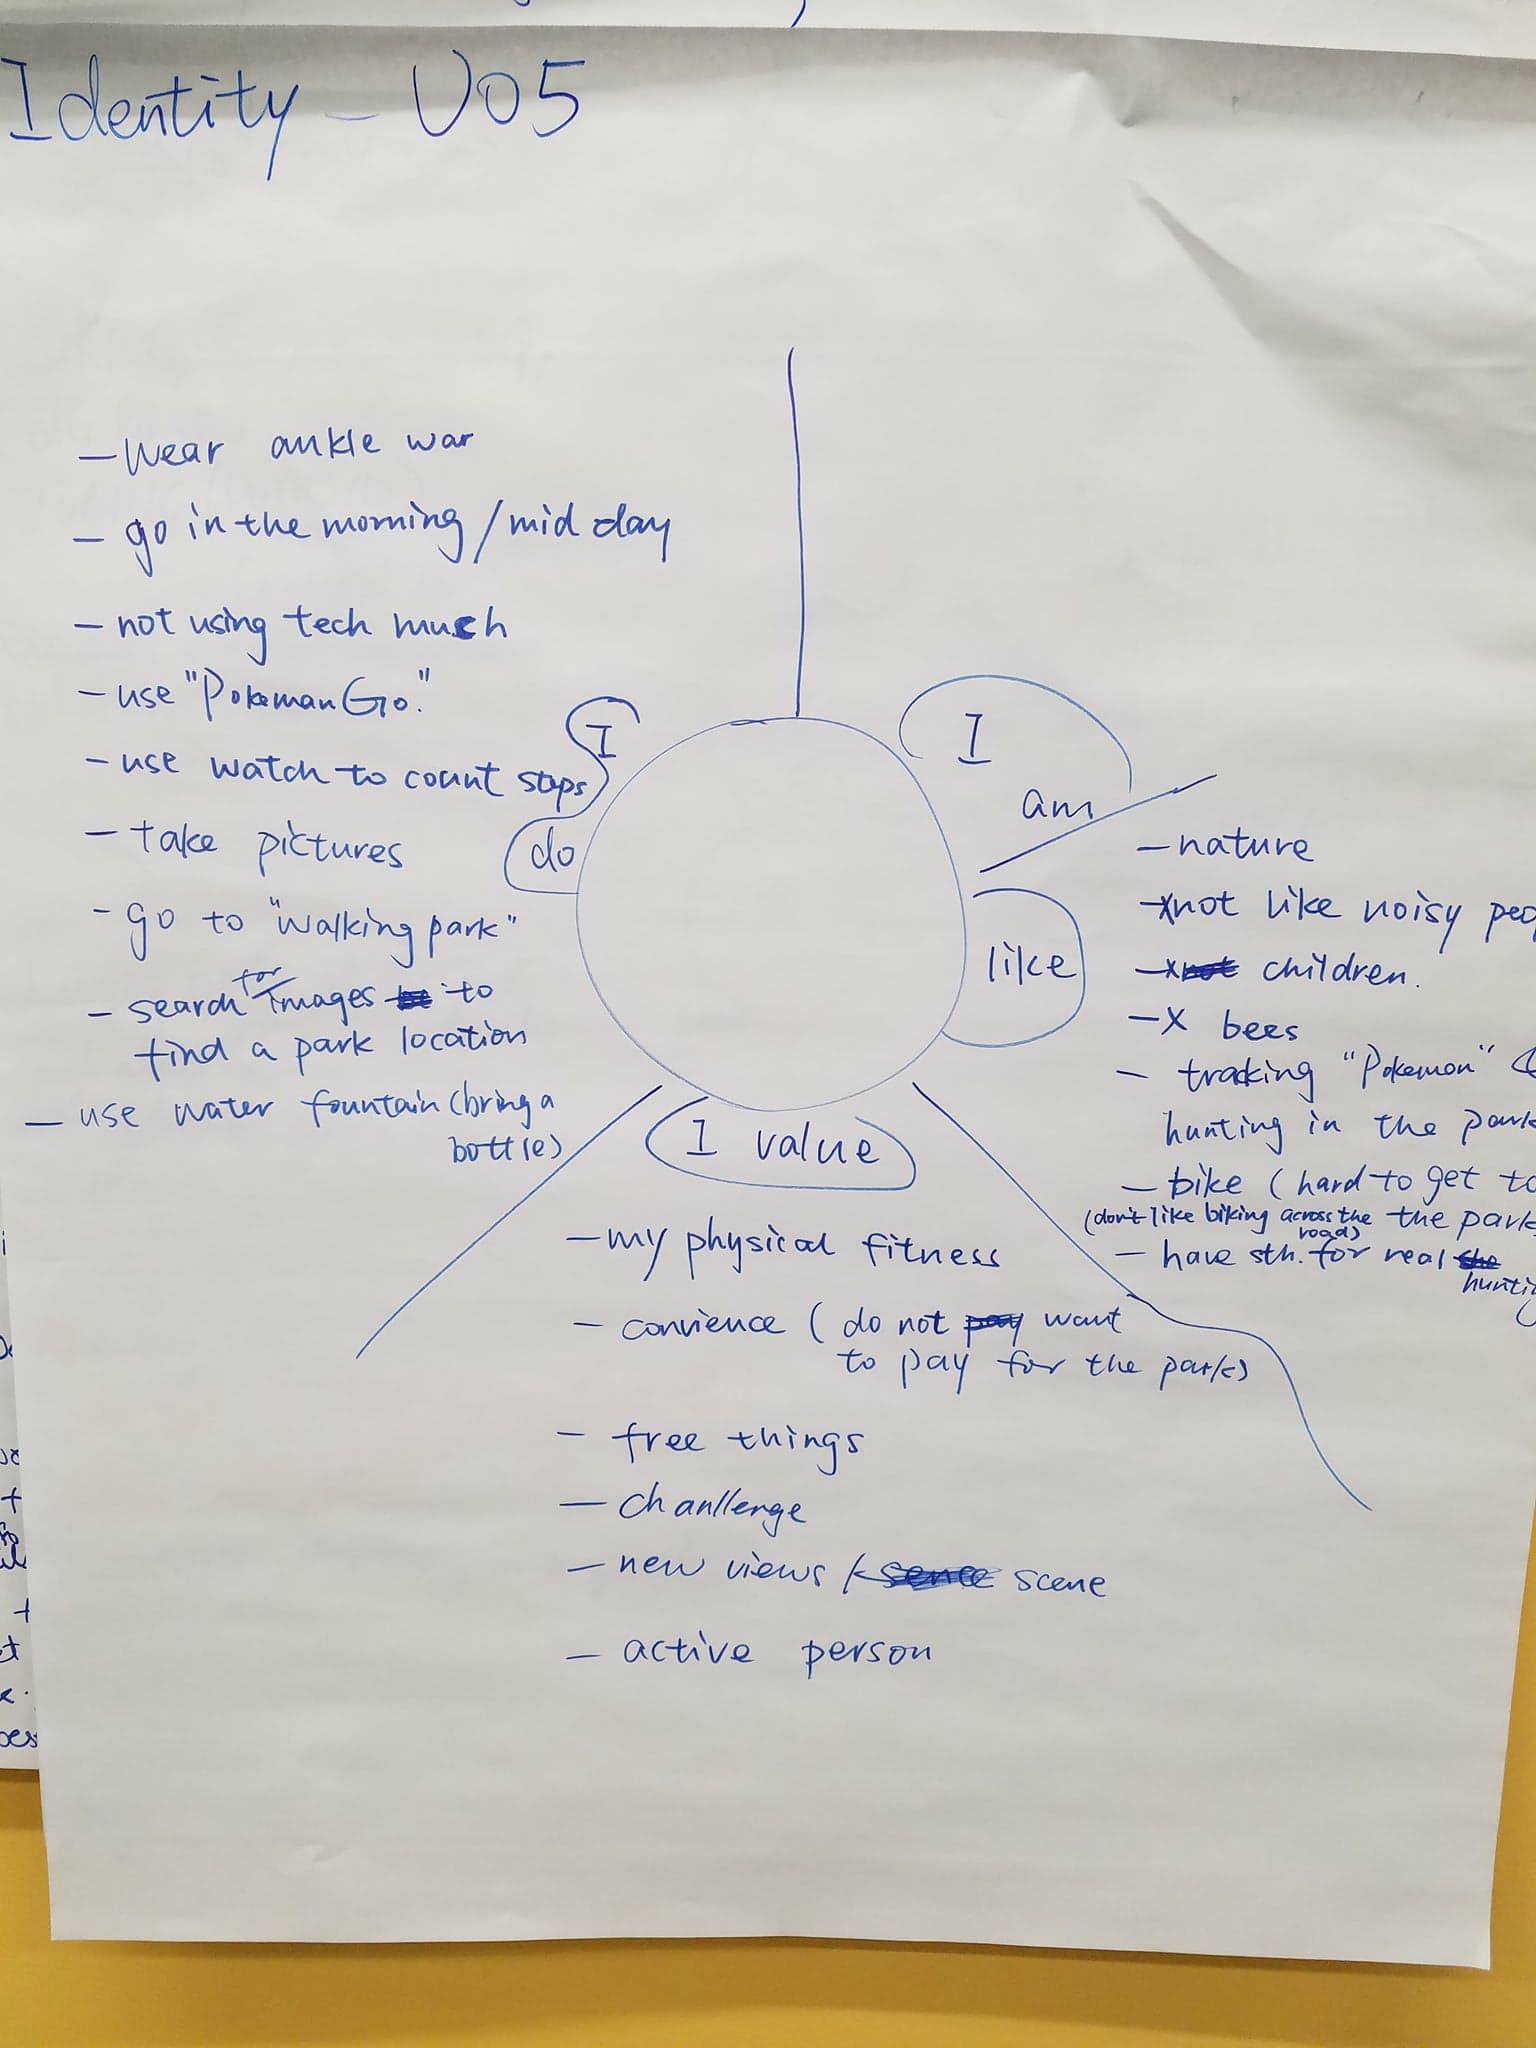 Identity - U05
- wear ankle war
- go in the morning / mid day
- not using tech much
- use "Pokeman Go."
- use watch to count steps
- take pictures
- go to "walking park"
- search for images to
find a park location
- use water fountain (bring a
bottle)
I
do
I
am
like
- nature
- x not like noisy peo
- x children.
- x bees
- tracking "Pokemon"
hunting in the park
- bike (hard to get to
(don't like biking across the the park
roads)
- have sth. for real
hunti
I value
- my physical fitness
- convience ( do not want
to pay for the park)
- free things
- chanllenge
- new views / scene
- active person